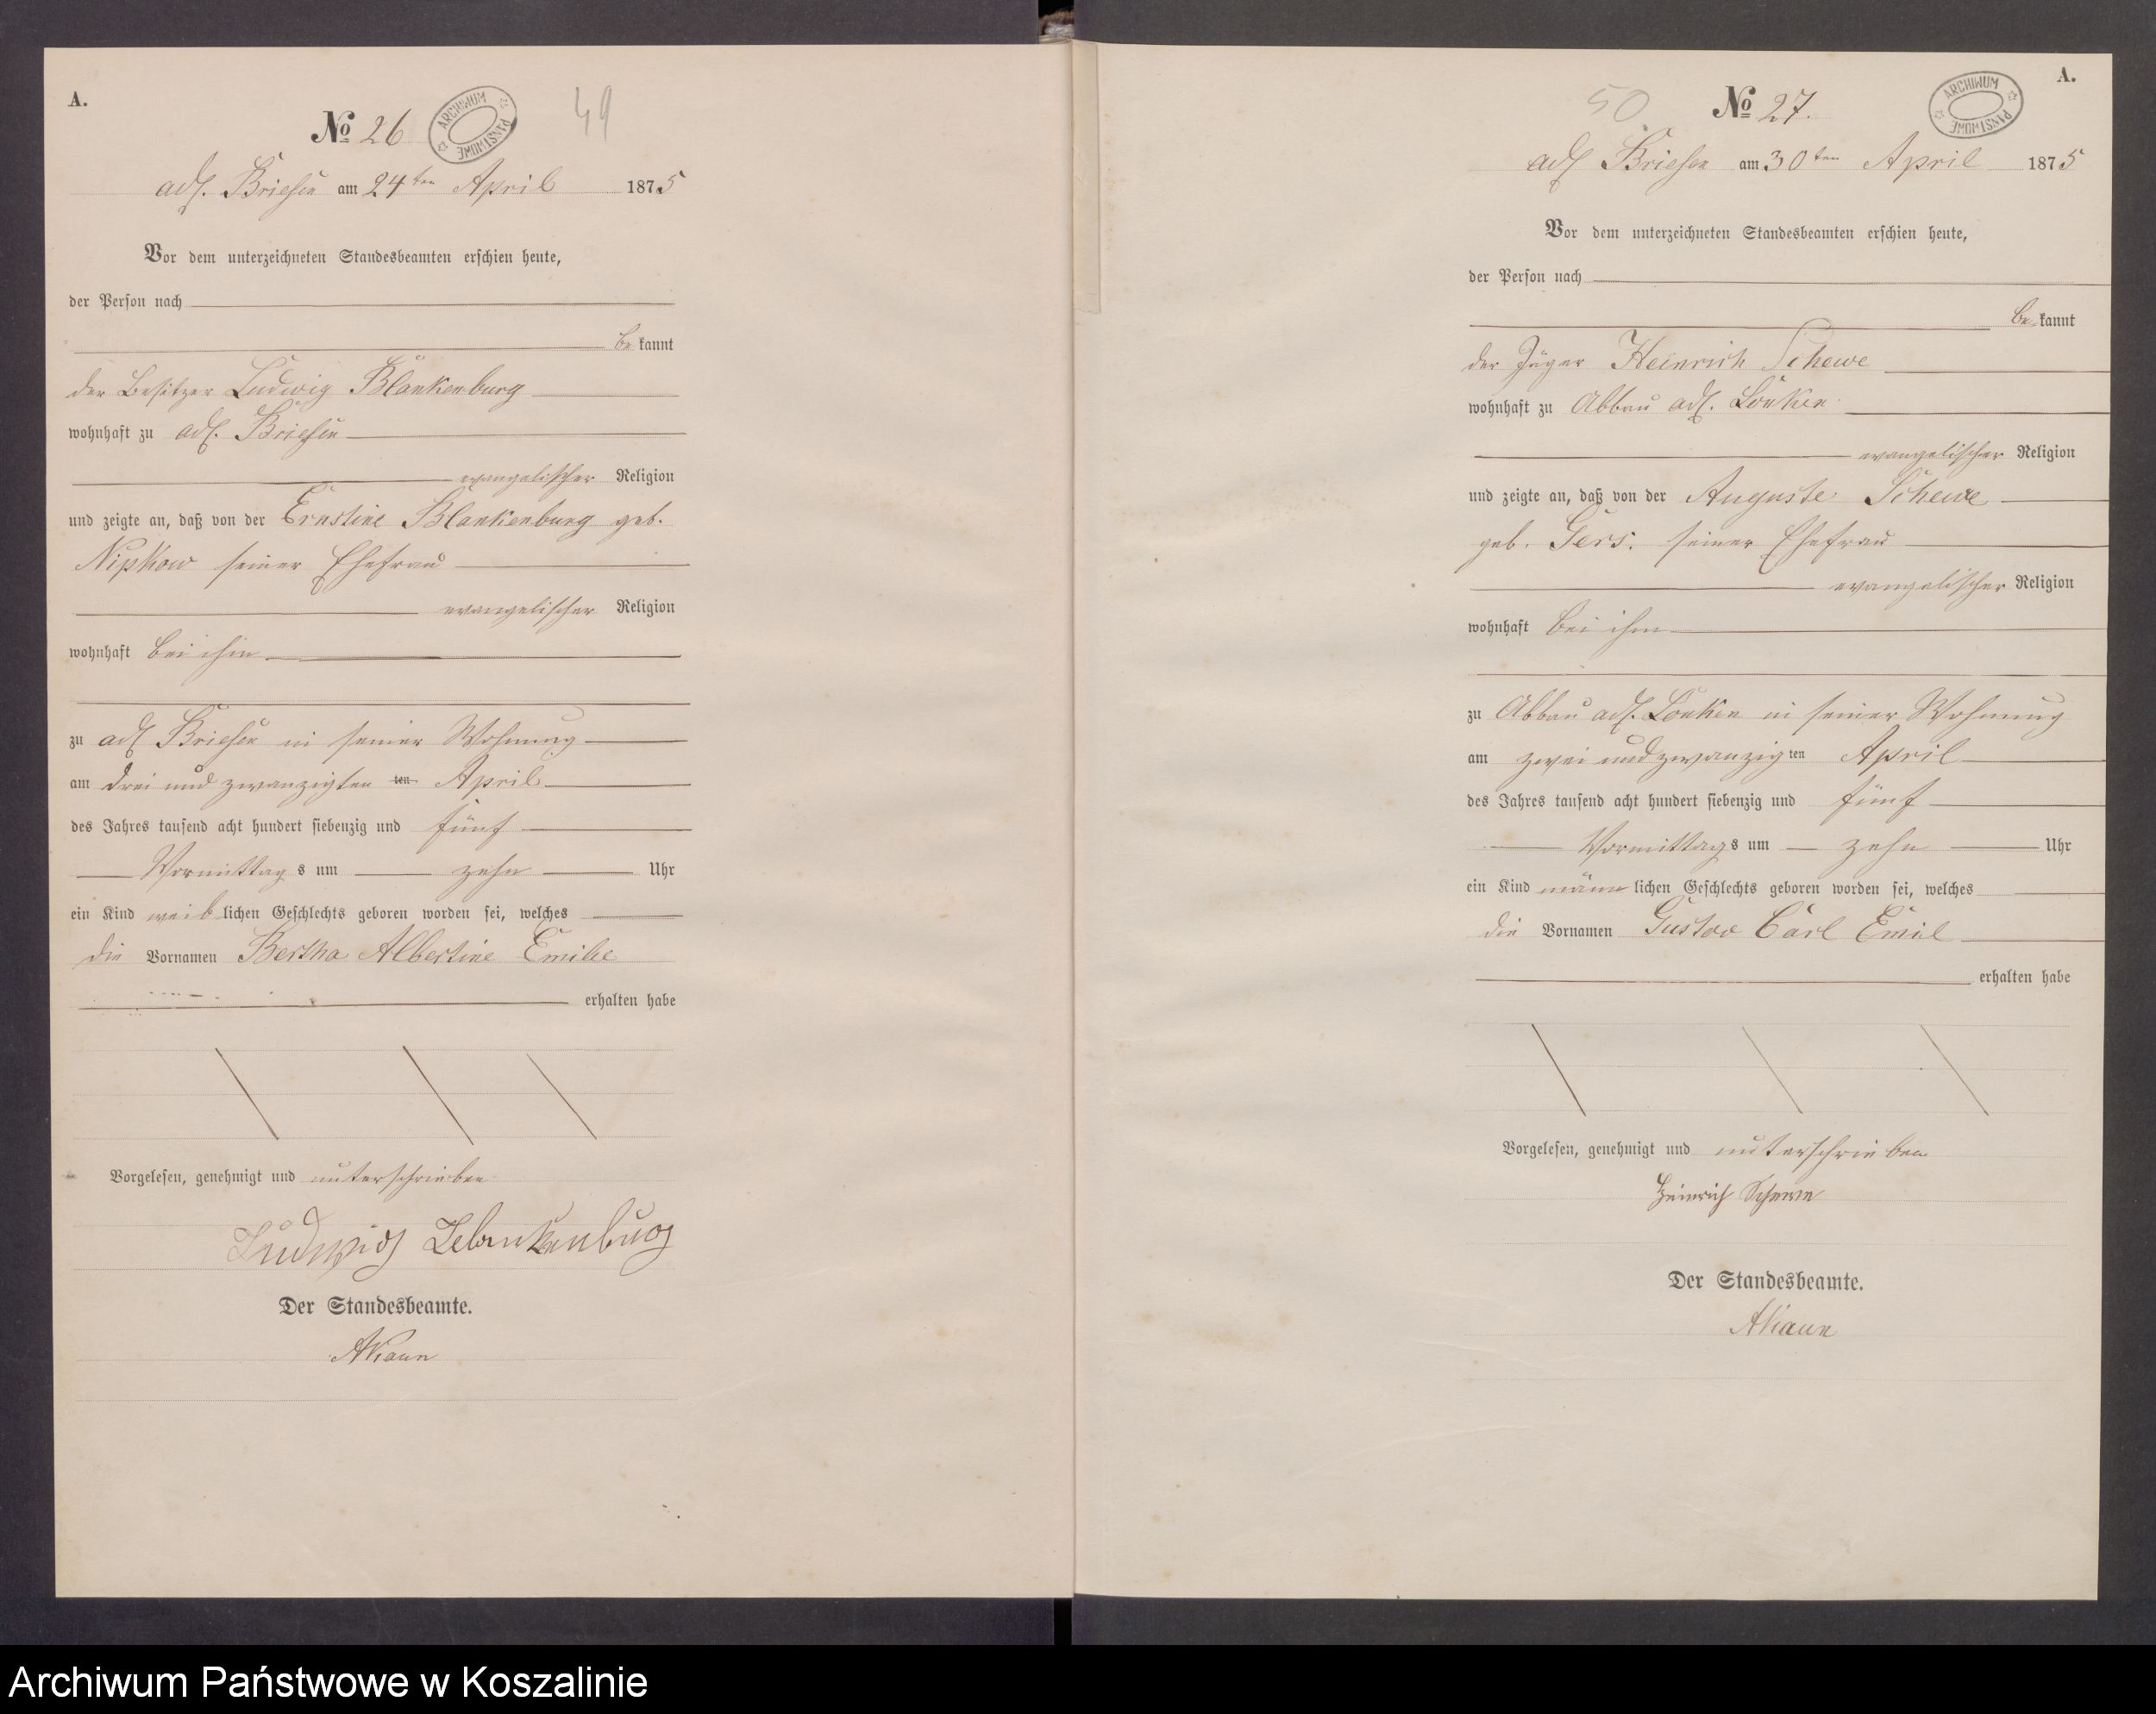 A.
№ 26
ARCHIWUM PAŃSTWOWE
49
adl. Briesen am 24ten April 1875
Vor dem unterzeichneten Standesbeamten erschien heute,
der Person nach
bekannt
der Besitzer Ludwig Blankenburg
wohnhaft zu adl. Briesen
evangelischer Religion
und zeigte an, daß von der Ernstine Blankenburg geb.
Nipkow seiner Ehefrau
evangelischer Religion
wohnhaft bei ihm
zu adl Briesen in seiner Wohnung
am drei und zwanzigsten ten April
des Jahres tausend acht hundert siebenzig und fünf
Vormittags um zehn Uhr
ein Kind weiblichen Geschlechts geboren worden sei, welches
die Vornamen Bertha Albertine Emilie
erhalten habe
Vorgelesen, genehmigt und unterschrieben
Ludwig Blankenburg
Der Standesbeamte.
A.
50
№ 27.
ARCHIWUM PAŃSTWOWE
adl Briesen am 30ten April 1875
Vor dem unterzeichneten Standesbeamten erschien heute,
der Person nach
bekannt
der Jäger Heinrich Schewe
wohnhaft zu Abbau adl.
evangelischer Religion
und zeigte an, daß von der Auguste Schewe
geb. Gers. seiner Ehefrau
evangelischer Religion
wohnhaft bei ihm
zu Abbau adl. in seiner Wohnung
am zwei und zwanzigten April
des Jahres tausend acht hundert siebenzig und fünf
Vormittags um zehn Uhr
ein Kind männlichen Geschlechts geboren worden sei, welches
die Vornamen Gustav Carl Emil
erhalten habe
Vorgelesen, genehmigt und unterschrieben
Heinrich Schewe
Der Standesbeamte.
Archiwum Państwowe w Koszalinie